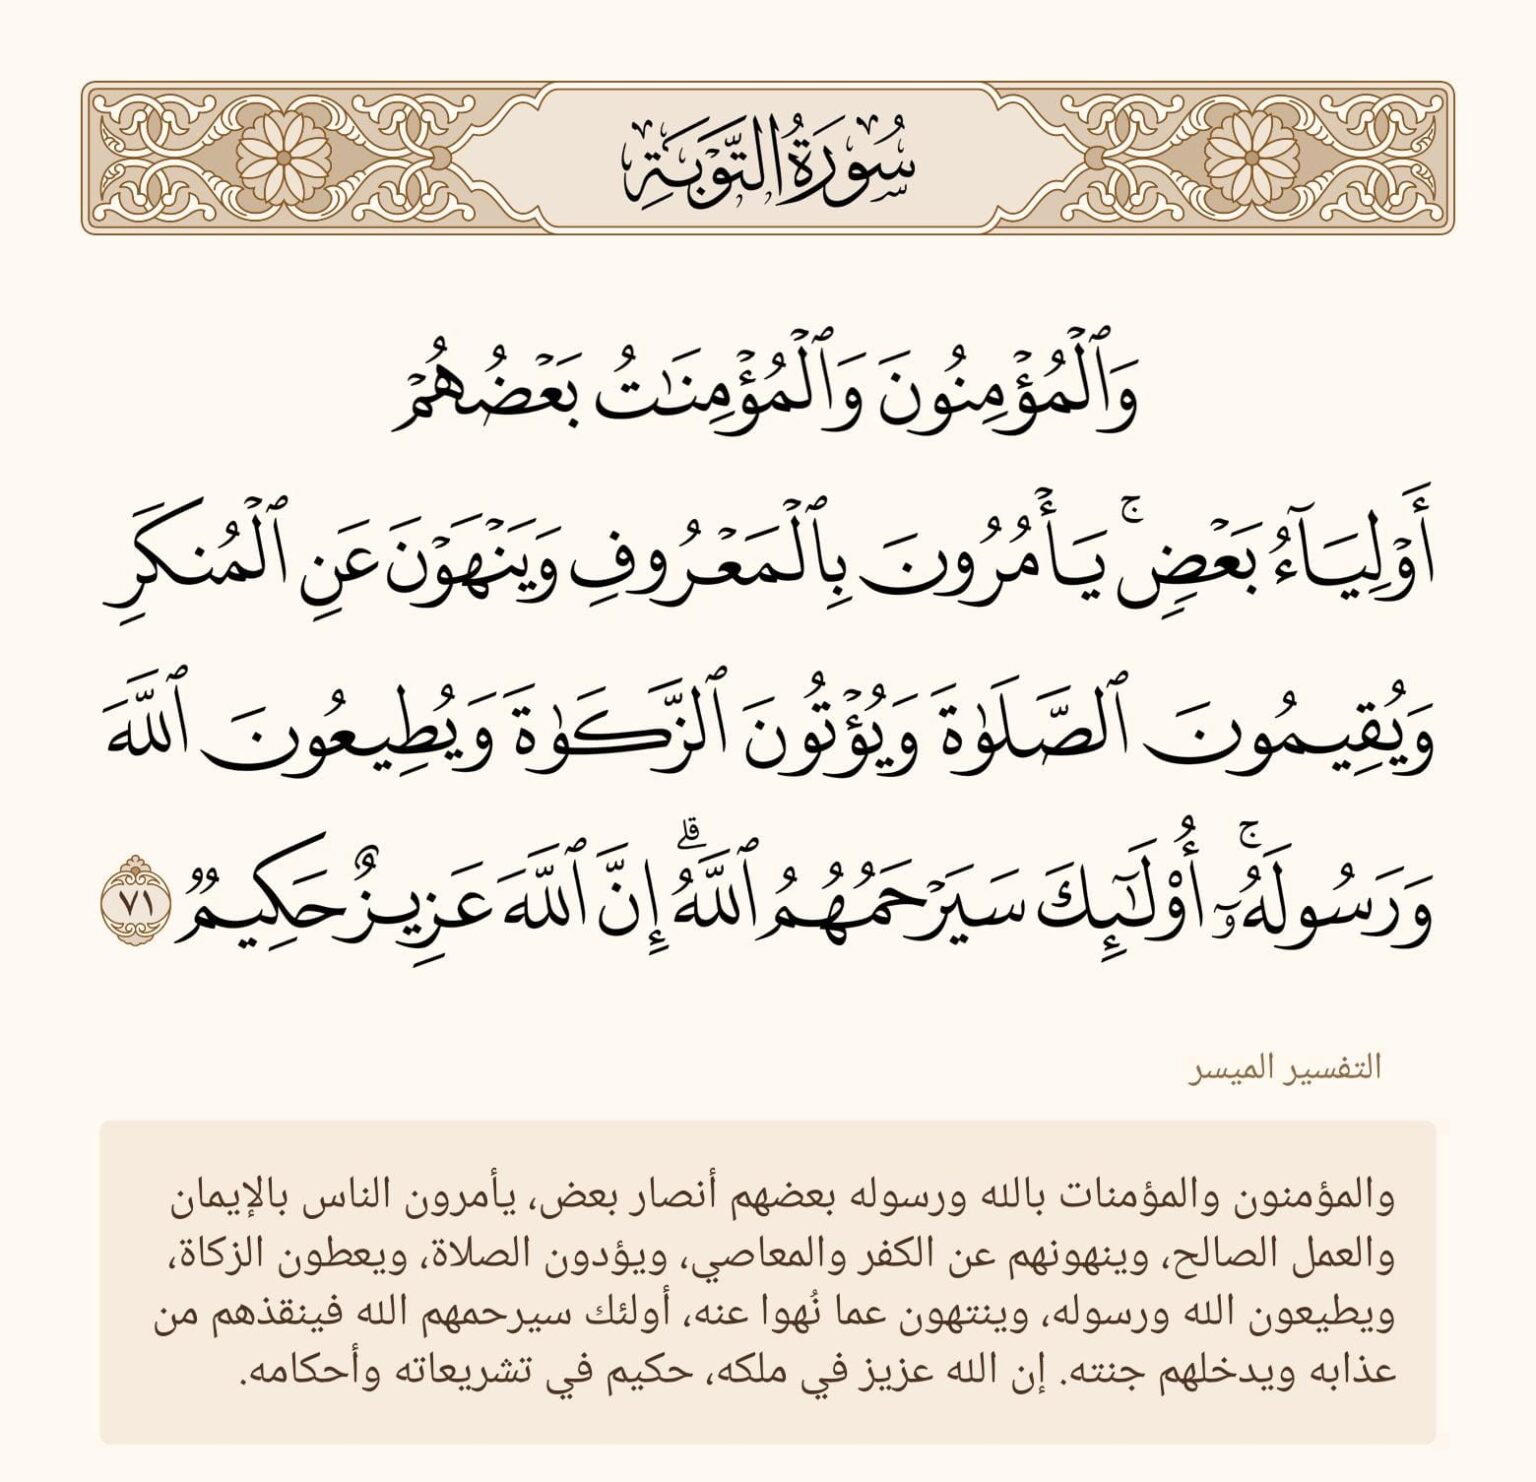 سُورَةُ التَّوْبَةِ
وَٱلْمُؤْمِنُونَ وَٱلْمُؤْمِنَٰتُ بَعْضُهُمْ
أَوْلِيَآءُ بَعْضٍۚ يَأْمُرُونَ بِٱلْمَعْرُوفِ وَيَنْهَوْنَ عَنِ ٱلْمُنكَرِ
وَيُقِيمُونَ ٱلصَّلَوٰةَ وَيُؤْتُونَ ٱلزَّكَوٰةَ وَيُطِيعُونَ ٱللَّهَ
وَرَسُولَهُۥٓۚ أُو۟لَٰٓئِكَ سَيَرْحَمُهُمُ ٱللَّهُۗ إِنَّ ٱللَّهَ عَزِيزٌ حَكِيمٌ ٧١
التفسير الميسر
والمؤمنون والمؤمنات بالله ورسوله بعضهم أنصار بعض، يأمرون الناس بالإيمان
والعمل الصالح، وينهونهم عن الكفر والمعاصي، ويؤدون الصلاة، ويعطون الزكاة،
ويطيعون الله ورسوله، وينتهون عما نُهوا عنه، أولئك سيرحمهم الله فينقذهم من
عذابه ويدخلهم جنته. إن الله عزيز في ملكه، حكيم في تشريعاته وأحكامه.